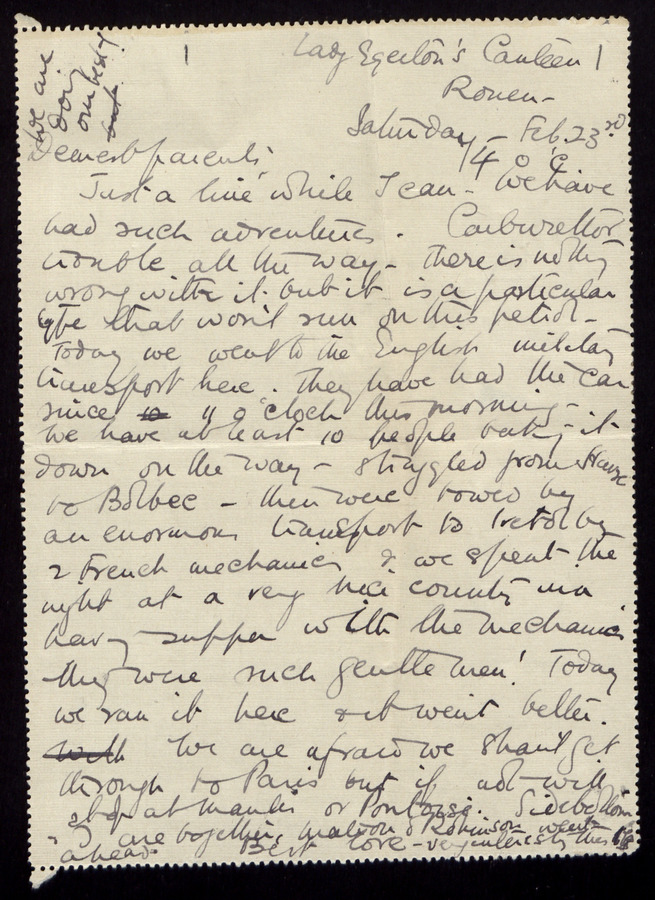 we are
doing
our best!
1
Lady Egerton's Canteen 1
Rouen -
Saturday - Feb. 23rd
4 o'c
Dearest parents
Just a line while I can - We have
had such adventures. Carburettor
trouble all the way - there is nothing
wrong with it but it is a particular
type that won't run on this petrol -
Today we went to the English military
transport here. They have had the car
since 11 o'clock this morning -
We have at least 10 people taking it
down on the way - struggled from Havre
to Bolbec - then were towed by
an enormous transport to Yvetot by
2 French mechanics & we spent the
night at a very nice country inn
having supper with the mechanics
they were such gentlemen! Today
we ran it here & it went better.
We are afraid we shan't get
through to Paris but if not will
stop at Mantes or Pontoise. Sidebottom
& are together, & Robinson went
ahead. Best love - very interesting this